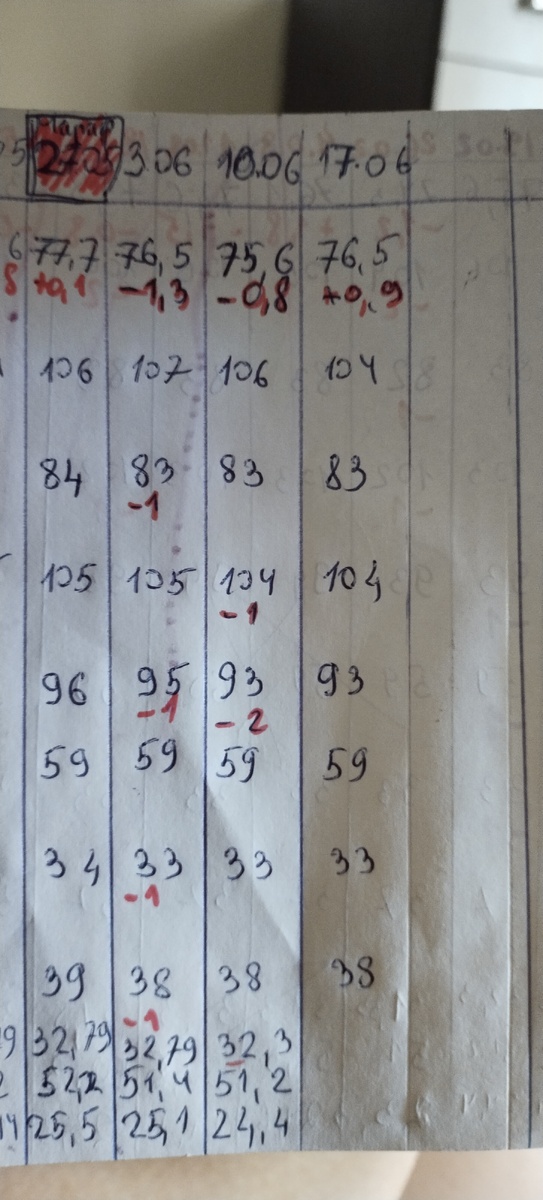 5 27.05 3.06 10.06 17.06
6 77,7 76,5 75,6 76,5
8 +0,1 -1,3 -0,8 +0,9
106 107 106 104
84 83 83 83
-1
105 105 104 104
-1
96 95 93 93
-1 -2
59 59 59 59
34 33 33 33
-1
39 38 38 38
-1
9 32,79 32,79 32,3
2 52,2 51,4 51,2
14 25,5 25,1 24,4